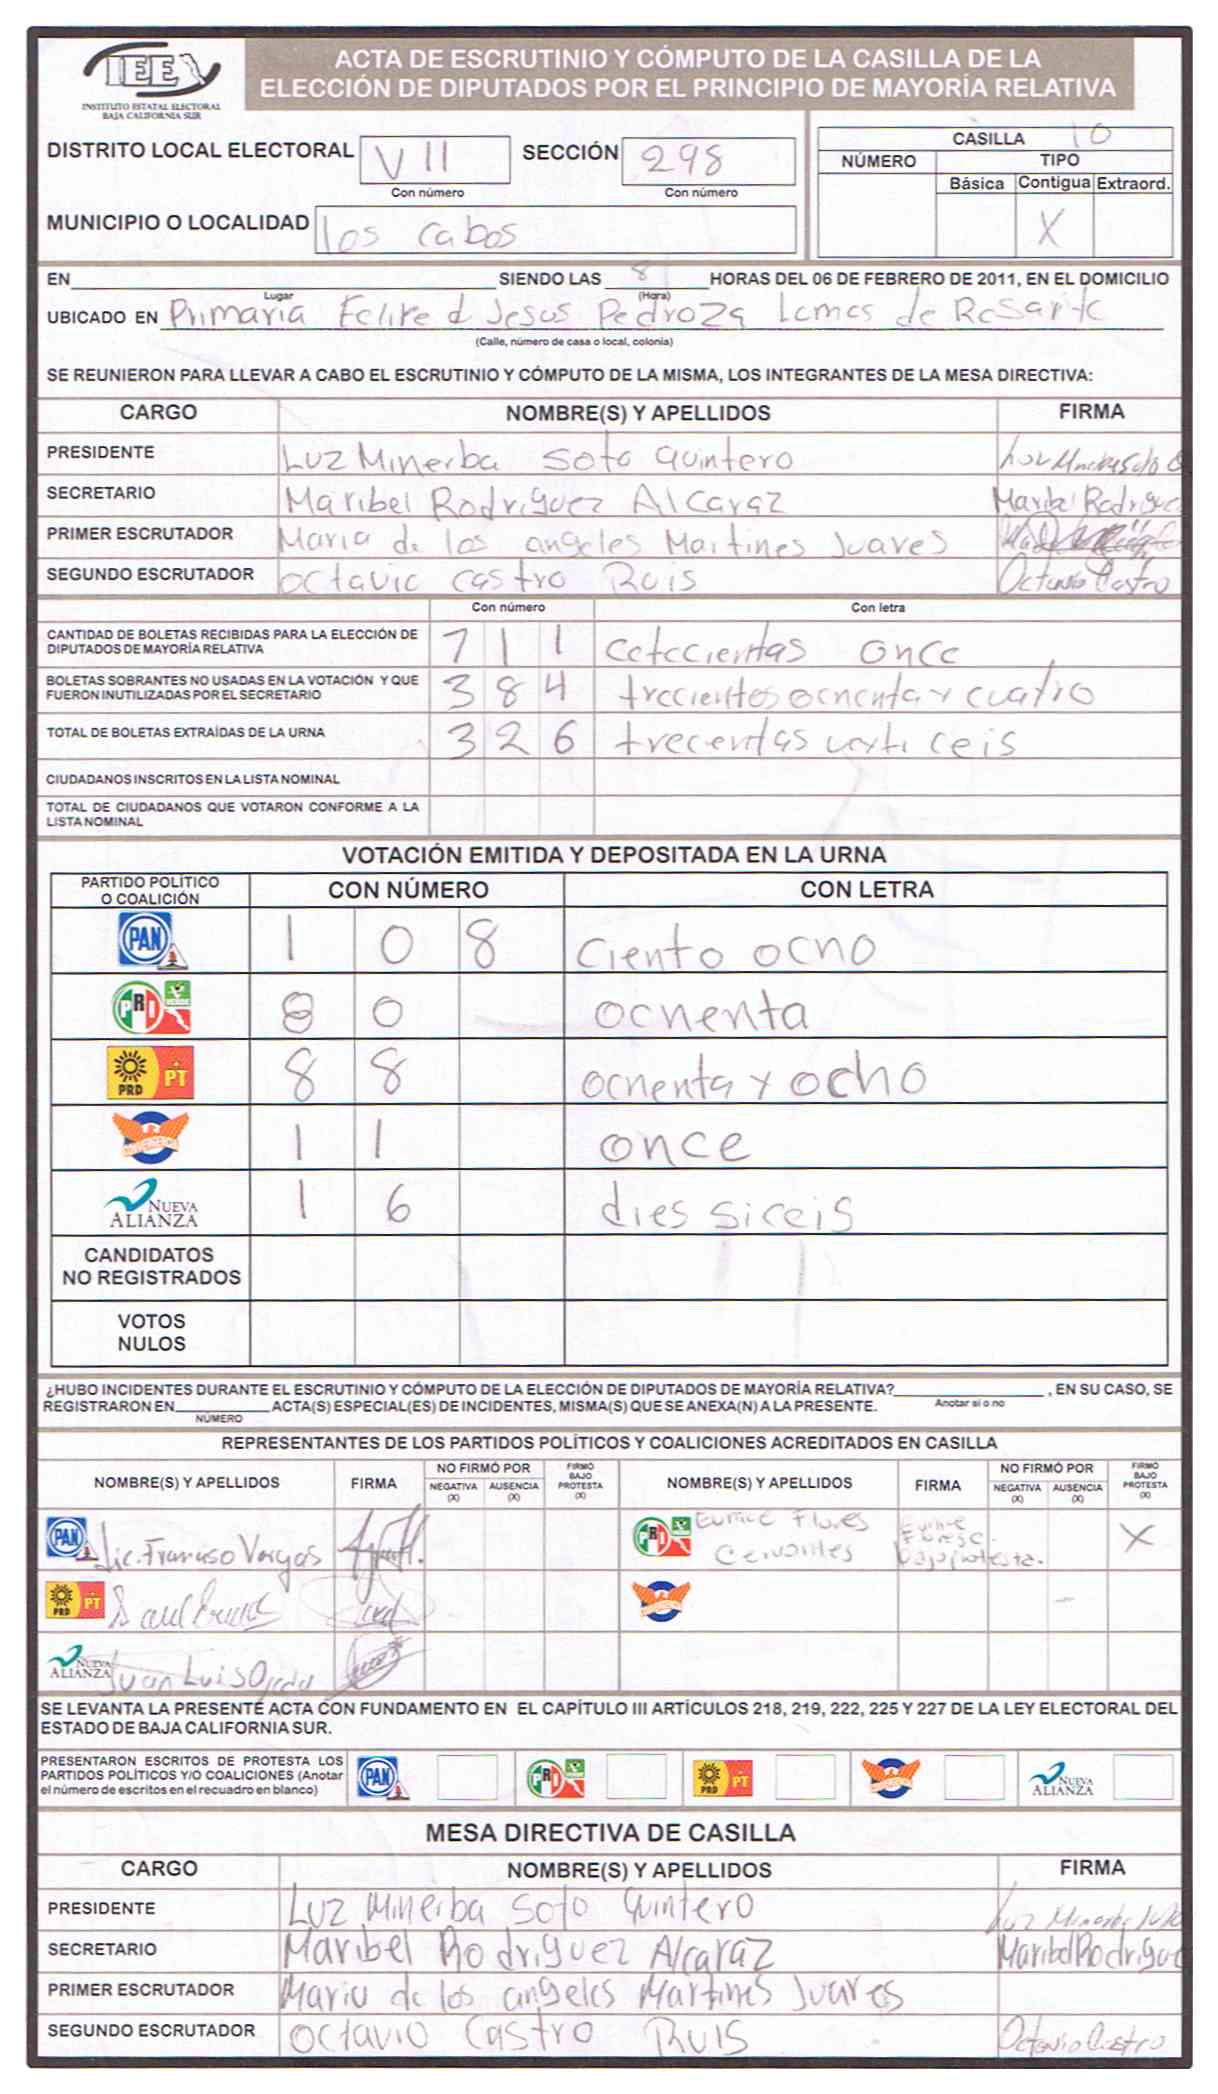 IEE
INSTITUTO ESTATAL ELECTORAL
BAJA CALIFORNIA SUR
ACTA DE ESCRUTINIO Y CÓMPUTO DE LA CASILLA DE LA
ELECCIÓN DE DIPUTADOS POR EL PRINCIPIO DE MAYORÍA RELATIVA
DISTRITO LOCAL ELECTORAL VII SECCIÓN 298
Con número Con número
MUNICIPIO O LOCALIDAD los cabos
CASILLA 10
NÚMERO TIPO
Básica Contigua Extraord.
X
EN SIENDO LAS 8 HORAS DEL 06 DE FEBRERO DE 2011, EN EL DOMICILIO
Lugar (Hora)
UBICADO EN Primaria Felipe d Jesus Pedroza Lomas de Rosarito
(Calle, número de casa o local, colonia)
SE REUNIERON PARA LLEVAR A CABO EL ESCRUTINIO Y CÓMPUTO DE LA MISMA, LOS INTEGRANTES DE LA MESA DIRECTIVA:
CARGO NOMBRE(S) Y APELLIDOS FIRMA
PRESIDENTE Luz Minerba Soto Quintero
SECRETARIO Maribel Rodriguez Alcaraz Maribel Rodrigue
PRIMER ESCRUTADOR Maria de los angeles Martines Juares
SEGUNDO ESCRUTADOR octavio castro Ruis Octavio Castro
Con número Con letra
CANTIDAD DE BOLETAS RECIBIDAS PARA LA ELECCIÓN DE
DIPUTADOS DE MAYORÍA RELATIVA 7 1 1 cetecientas once
BOLETAS SOBRANTES NO USADAS EN LA VOTACIÓN Y QUE
FUERON INUTILIZADAS POR EL SECRETARIO 3 8 4 trecientos ochenta y cuatro
TOTAL DE BOLETAS EXTRAÍDAS DE LA URNA 3 2 6 trecentas venti ceis
CIUDADANOS INSCRITOS EN LA LISTA NOMINAL
TOTAL DE CIUDADANOS QUE VOTARON CONFORME A LA
LISTA NOMINAL
VOTACIÓN EMITIDA Y DEPOSITADA EN LA URNA
PARTIDO POLÍTICO
O COALICIÓN CON NÚMERO CON LETRA
PAN 1 0 8 ciento ocho
PRI VERDE 8 0 ochenta
PRD PT 8 8 ochenta y ocho
CONVERGENCIA 1 1 once
NUEVA ALIANZA 1 6 dies siceis
CANDIDATOS
NO REGISTRADOS
VOTOS
NULOS
¿HUBO INCIDENTES DURANTE EL ESCRUTINIO Y CÓMPUTO DE LA ELECCIÓN DE DIPUTADOS DE MAYORÍA RELATIVA? , EN SU CASO, SE
Anotar sí o no
REGISTRARON EN ACTA(S) ESPECIAL(ES) DE INCIDENTES, MISMA(S) QUE SE ANEXA(N) A LA PRESENTE.
NÚMERO
REPRESENTANTES DE LOS PARTIDOS POLÍTICOS Y COALICIONES ACREDITADOS EN CASILLA
NOMBRE(S) Y APELLIDOS FIRMA NO FIRMÓ POR NEGATIVA (X) AUSENCIA (X) FIRMÓ BAJO PROTESTA (X) NOMBRE(S) Y APELLIDOS FIRMA NO FIRMÓ POR NEGATIVA (X) AUSENCIA (X) FIRMÓ BAJO PROTESTA (X)
PAN Lic. Francisco Vargas PRI Eunice Flores Cervantes Eunice Flores C. bajo protesta. X
PRD PT
NUEVA ALIANZA Juan Luis Ojeda
SE LEVANTA LA PRESENTE ACTA CON FUNDAMENTO EN EL CAPÍTULO III ARTÍCULOS 218, 219, 222, 225 Y 227 DE LA LEY ELECTORAL DEL
ESTADO DE BAJA CALIFORNIA SUR.
PRESENTARON ESCRITOS DE PROTESTA LOS
PARTIDOS POLÍTICOS Y/O COALICIONES (Anotar
el número de escritos en el recuadro en blanco) PAN PRI PRD PT NUEVA ALIANZA
MESA DIRECTIVA DE CASILLA
CARGO NOMBRE(S) Y APELLIDOS FIRMA
PRESIDENTE Luz Minerba Soto Quintero Luz Minerba Soto
SECRETARIO Maribel Rodriguez Alcaraz Maribel Rodrigue
PRIMER ESCRUTADOR Maria de los angeles Martines Juares
SEGUNDO ESCRUTADOR octavio Castro Ruis Octavio Castro